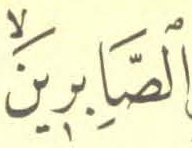 اَلصَّابِرِينَ ۙ